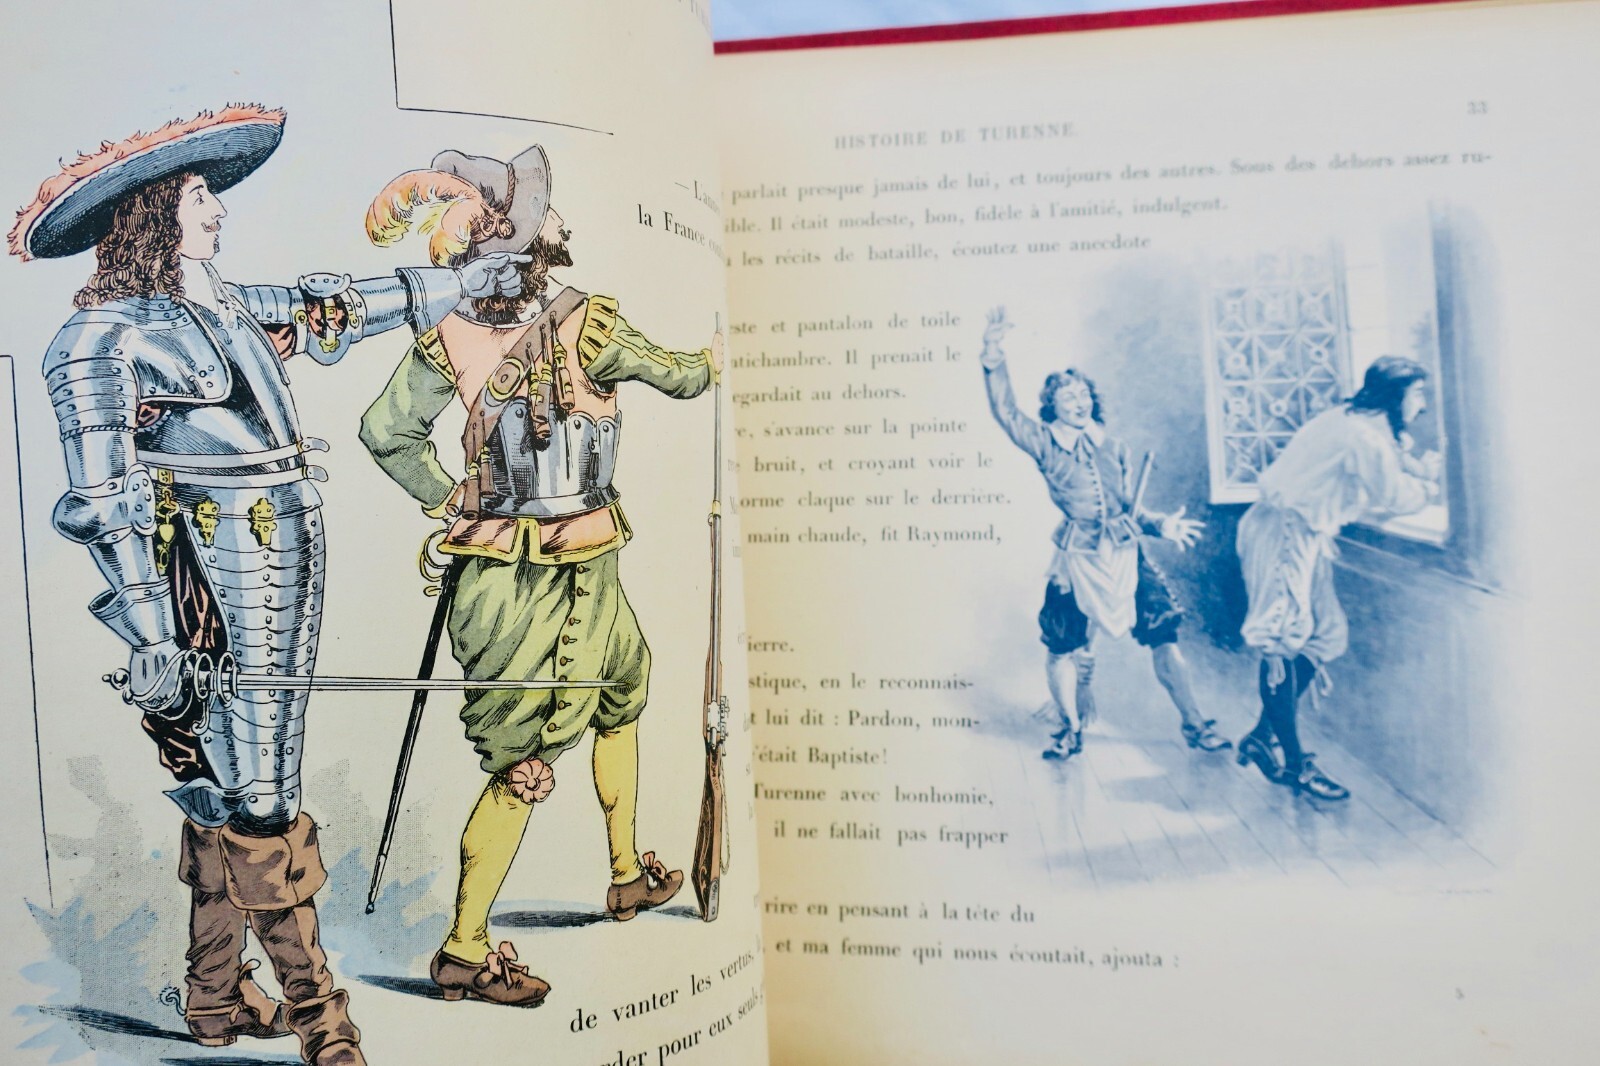 — L'a
la France
de vanter les vertus,
pour eux seuls
33
HISTOIRE DE TURENNE.
parlait presque jamais de lui, et toujours des autres. Sous des dehors assez ru-
ible. Il était modeste, bon, fidèle à l'amitié, indulgent.
les récits de bataille, écoutez une anecdote
ste et pantalon de toile
ntichambre. Il prenait le
egardait au dehors.
e, s'avance sur la pointe
bruit, et croyant voir le
orme claque sur le derrière.
main chaude, fit Raymond,
ierre.
stique, en le reconnais-
t lui dit : Pardon, mon-
'était Baptiste!
Turenne avec bonhomie,
il ne fallait pas frapper
rire en pensant à la tête du
, et ma femme qui nous écoutait, ajouta :